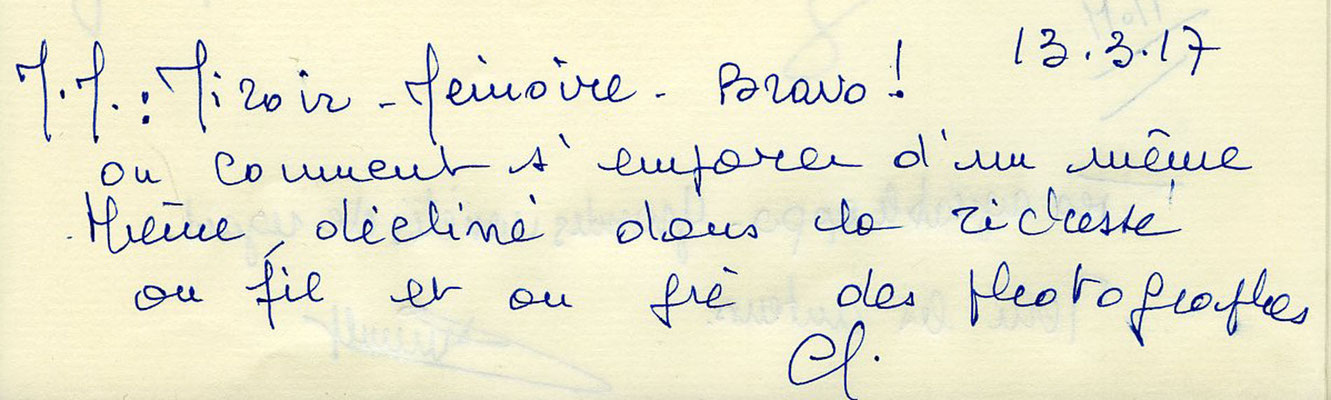 13.3.17
M.M. : Miroir - Mémoire - Bravo !
ou comment s'emparer d'un même
thème, décliné dans la richesse
au fil et au gré des photographes
Cl.